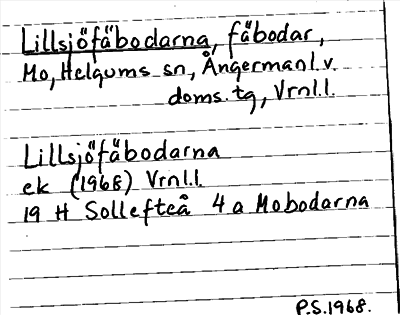 Lillsjöfäbodarna, fäbodar,
Mo, Helgums sn, Ångermanl. v.
doms. tg, Vrnl.l.
Lillsjöfäbodarna
ek (1968) Vrnl.l.
19 H Sollefteå 4 a Mobodarna
P.S. 1968.